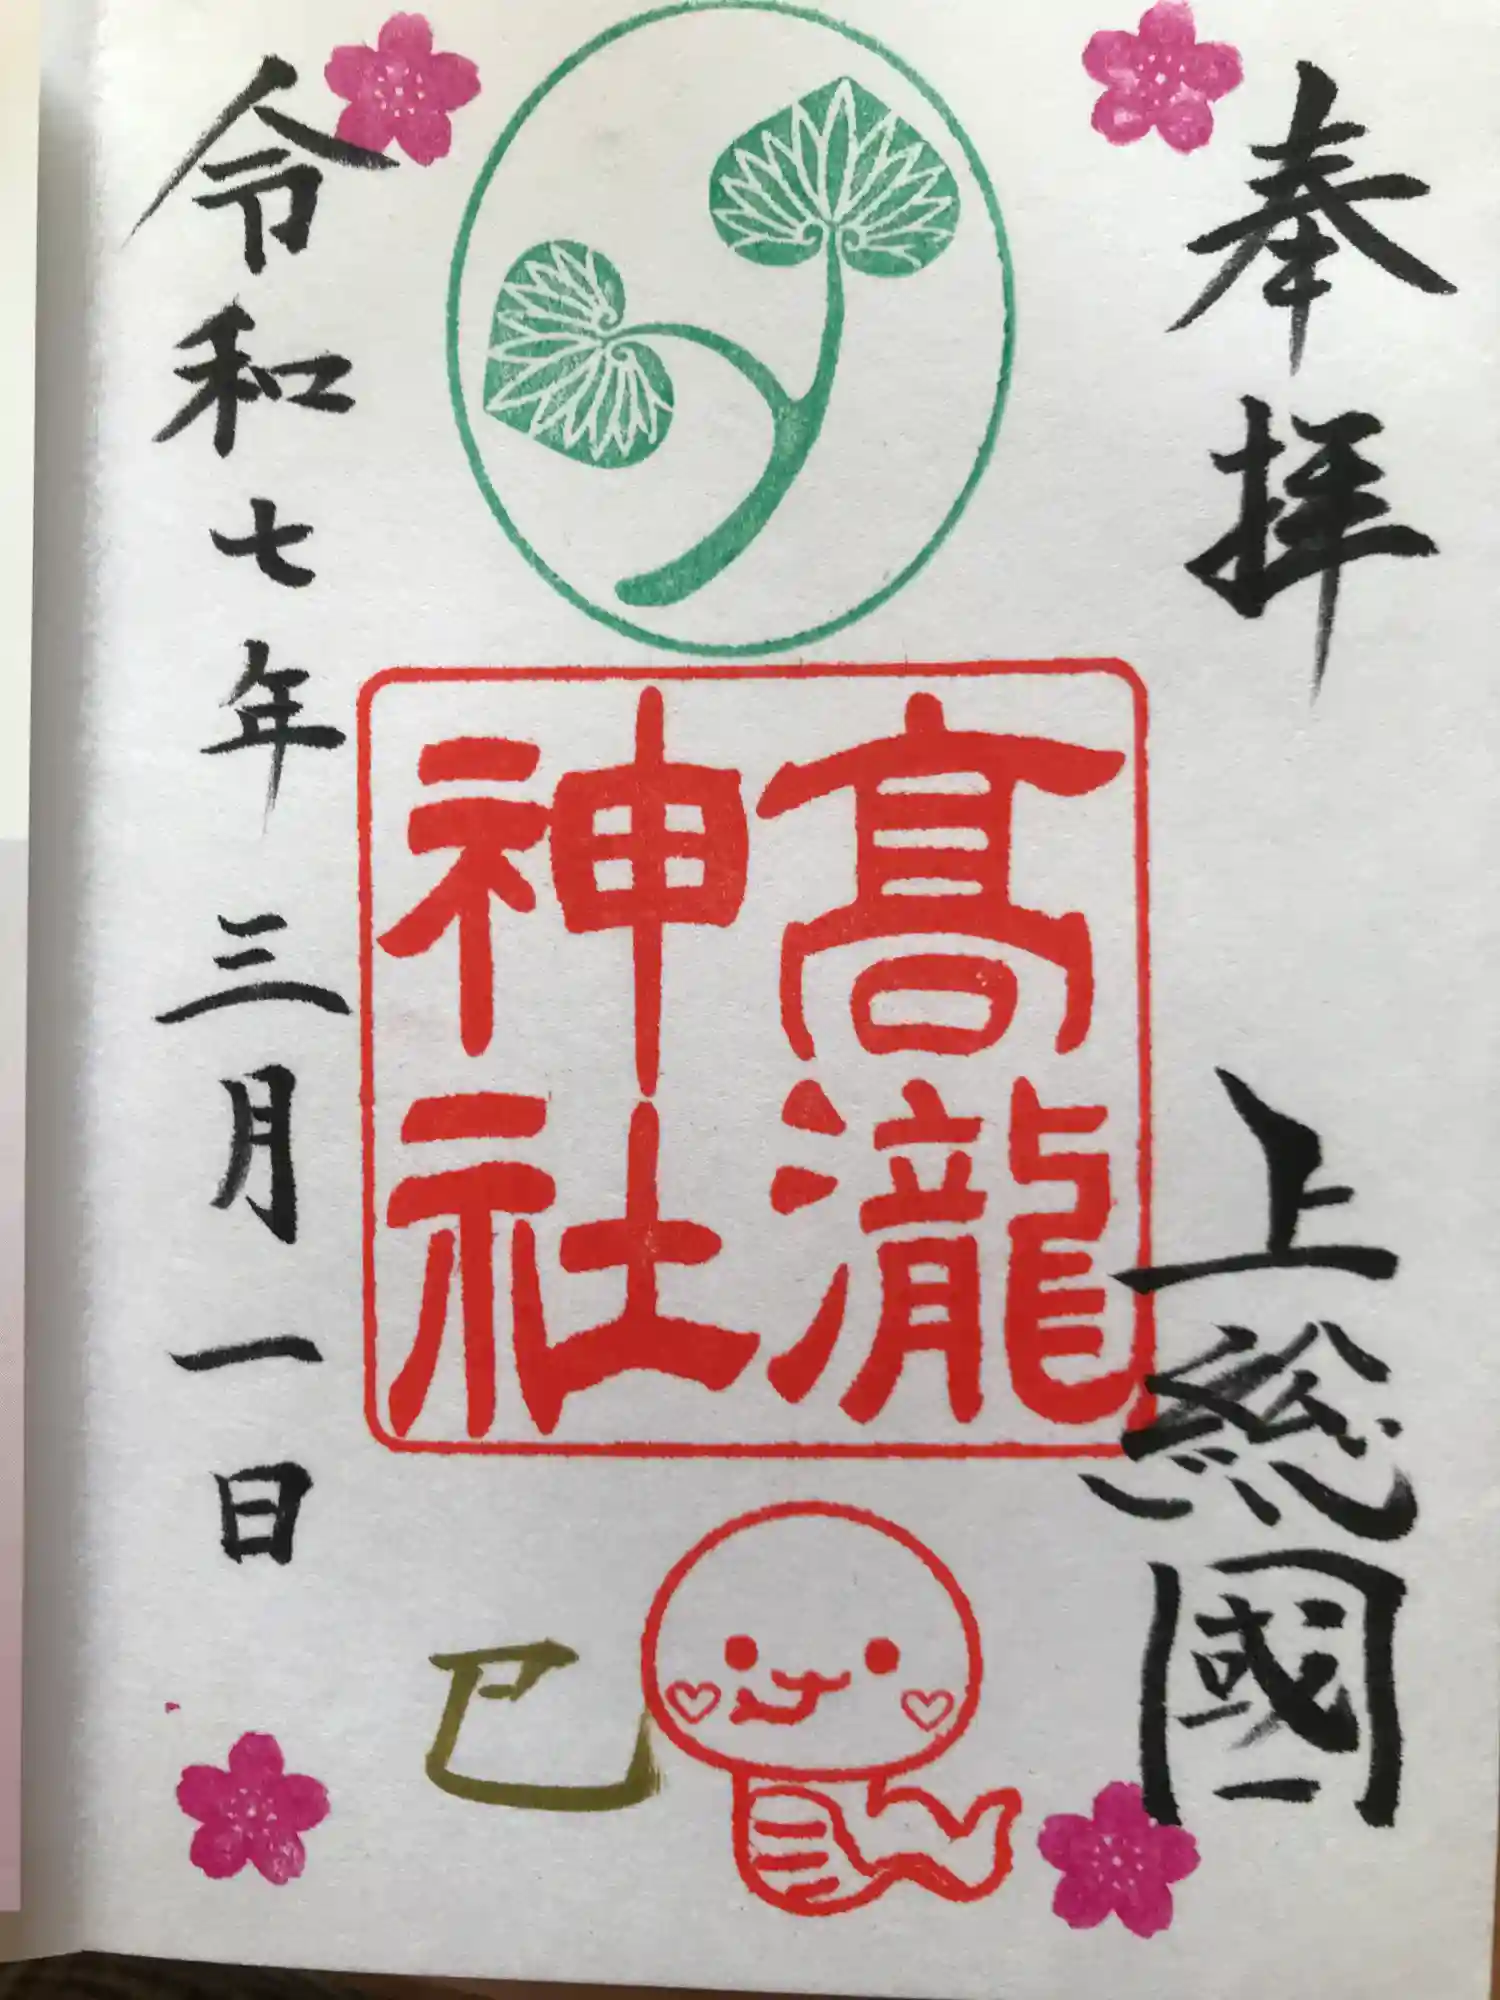 奉拝
上総國
髙瀧
神社
巳
令和七年三月一日